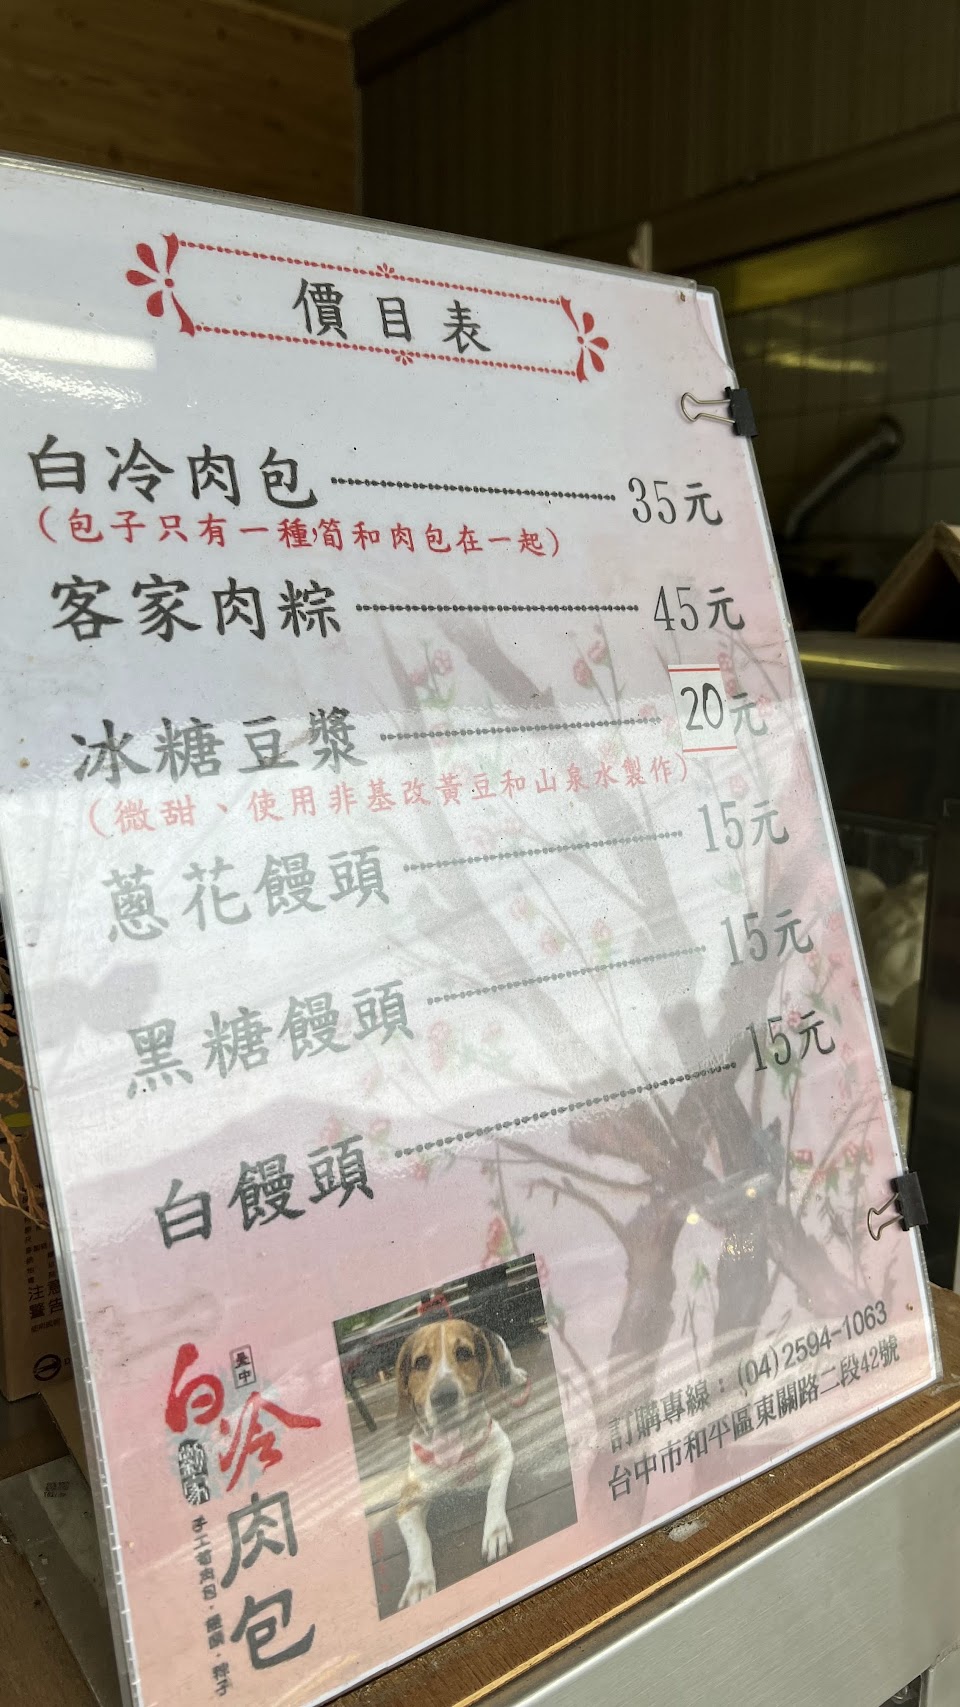 價目表
白冷肉包 35元
(包子只有一種,筍和肉包在一起)
客家肉粽 45元
冰糖豆漿 20元
(微甜、使用非基改黃豆和山泉水製作)
蔥花饅頭 15元
黑糖饅頭 15元
白饅頭 15元
訂購專線：(04)2594-1063
台中市和平區東關路二段42號
臺中
白冷
劉家
肉包
手工筍肉包．饅頭．粽子
注意
警告